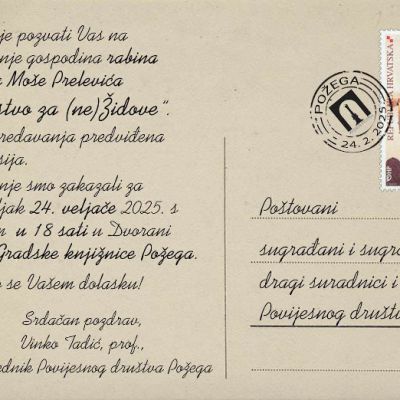 je pozvati Vas na
nje gospodina rabina
a Moše Prelevića
stvo za (ne)Židove“.
redavanja predviđena
sija.
nje smo zakazali za
ljak 24. veljače 2025. s
m u 18 sati u Dvorani
Gradske knjižnice Požega.
o se Vašem dolasku!
Srdačan pozdrav,
Vinko Tadić, prof.,
ednik Povijesnog društva Požega
POŽEGA
24. 2. 2025.
REPUBLIKA HRVATSKA
Poštovani
sugrađani i sugra
dragi suradnici i
Povijesnog društv